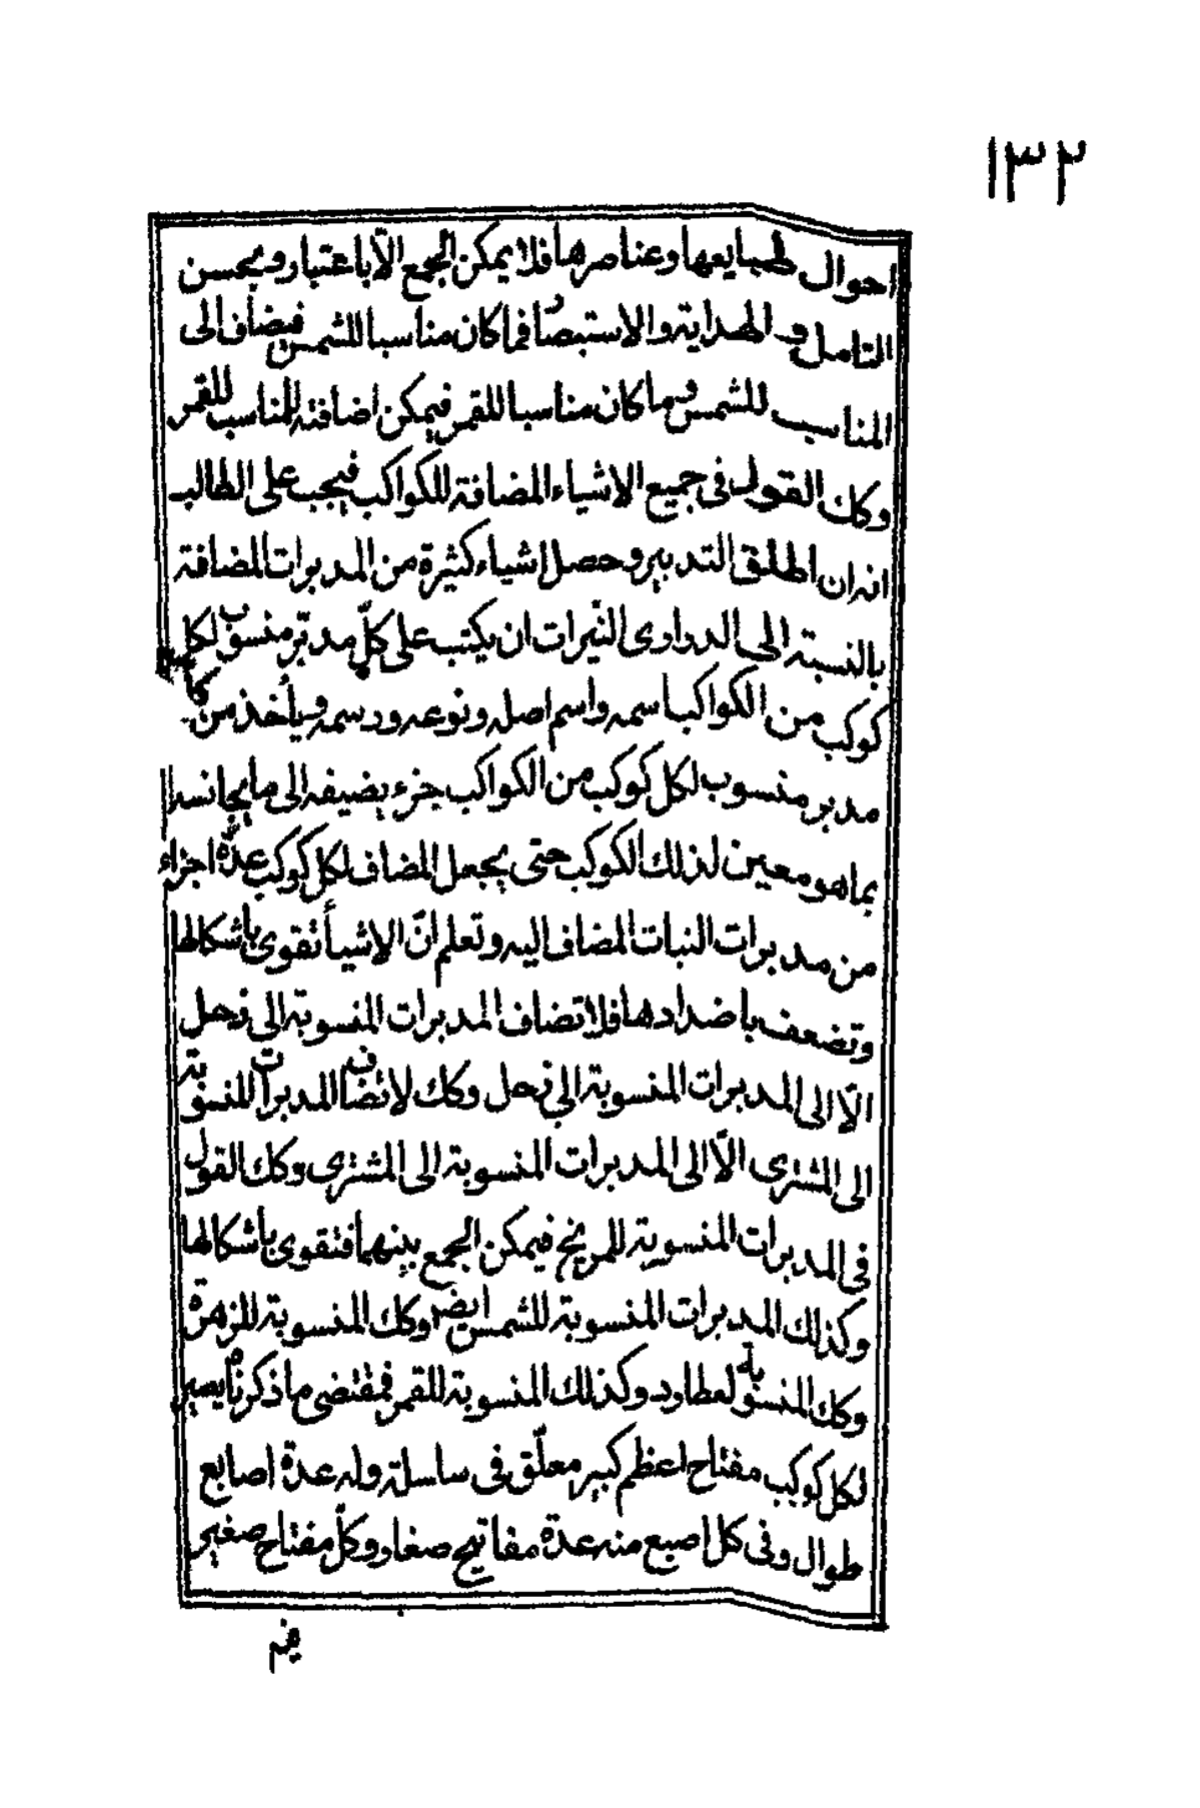 ١٣٢
احوال طبايعها وعناصرها فلا يمكن الجمع الّا باعتبار وبحسن
التامل و الهداية والاستبصار فما كان مناسبا للشمس فيضاف الى
المناسب للشمس وما كان مناسبا للقمر فيمكن اضافته للمناسب للقمر
وكك القول فى جميع الاشياء المضافة للكواكب فيجب على الطالب
انه ان اطلق التدبير وحصل اشياء كثيرة من المدبرات المضافة
بالنسبة الى الدرارى النّيرات ان يكتب على كلّ مدبّر منسوب لكل
كوكب من الكواكب اسمه واسم اصله ونوعه ورسمه ويأخذ من كل
مدبر منسوب لكل كوكب من الكواكب جزء يضيفه الى ما يجانسه
بماهو معين لذلك الكوكب حتى يجعل المضاف لكل كوكب عدّة اجزاء
من مدبرات النبات المضاف اليه وتعلم انّ الاشيأ تقوى باشكالها
وتضعف باضدادها فلا تضاف المدبرات المنسوبة الى زحل
الّا الى المدبرات المنسوبة الى زحل وكك لا تضاف المدبرات المنسوبة
الى المشترى الّا الى المدبرات المنسوبة الى المشترى وكك القول
فى المدبرات المنسوبة للمريخ فيمكن الجمع بينهما فتقوى باشكالها
وكذلك المدبرات المنسوبة للشمس ايضر وكك المنسوبة للزهرة
وكك المنسوبة لعطارد وكذلك المنسوبة للقمر فمقتضى ما ذكرناه يصير
لكل كوكب مفتاح اعظم كبير معلّق فى سلسلة وله عدة اصابع
طوال وفى كل اصبع منه عدة مفاتيح صغار وكلّ مفتاح صغير